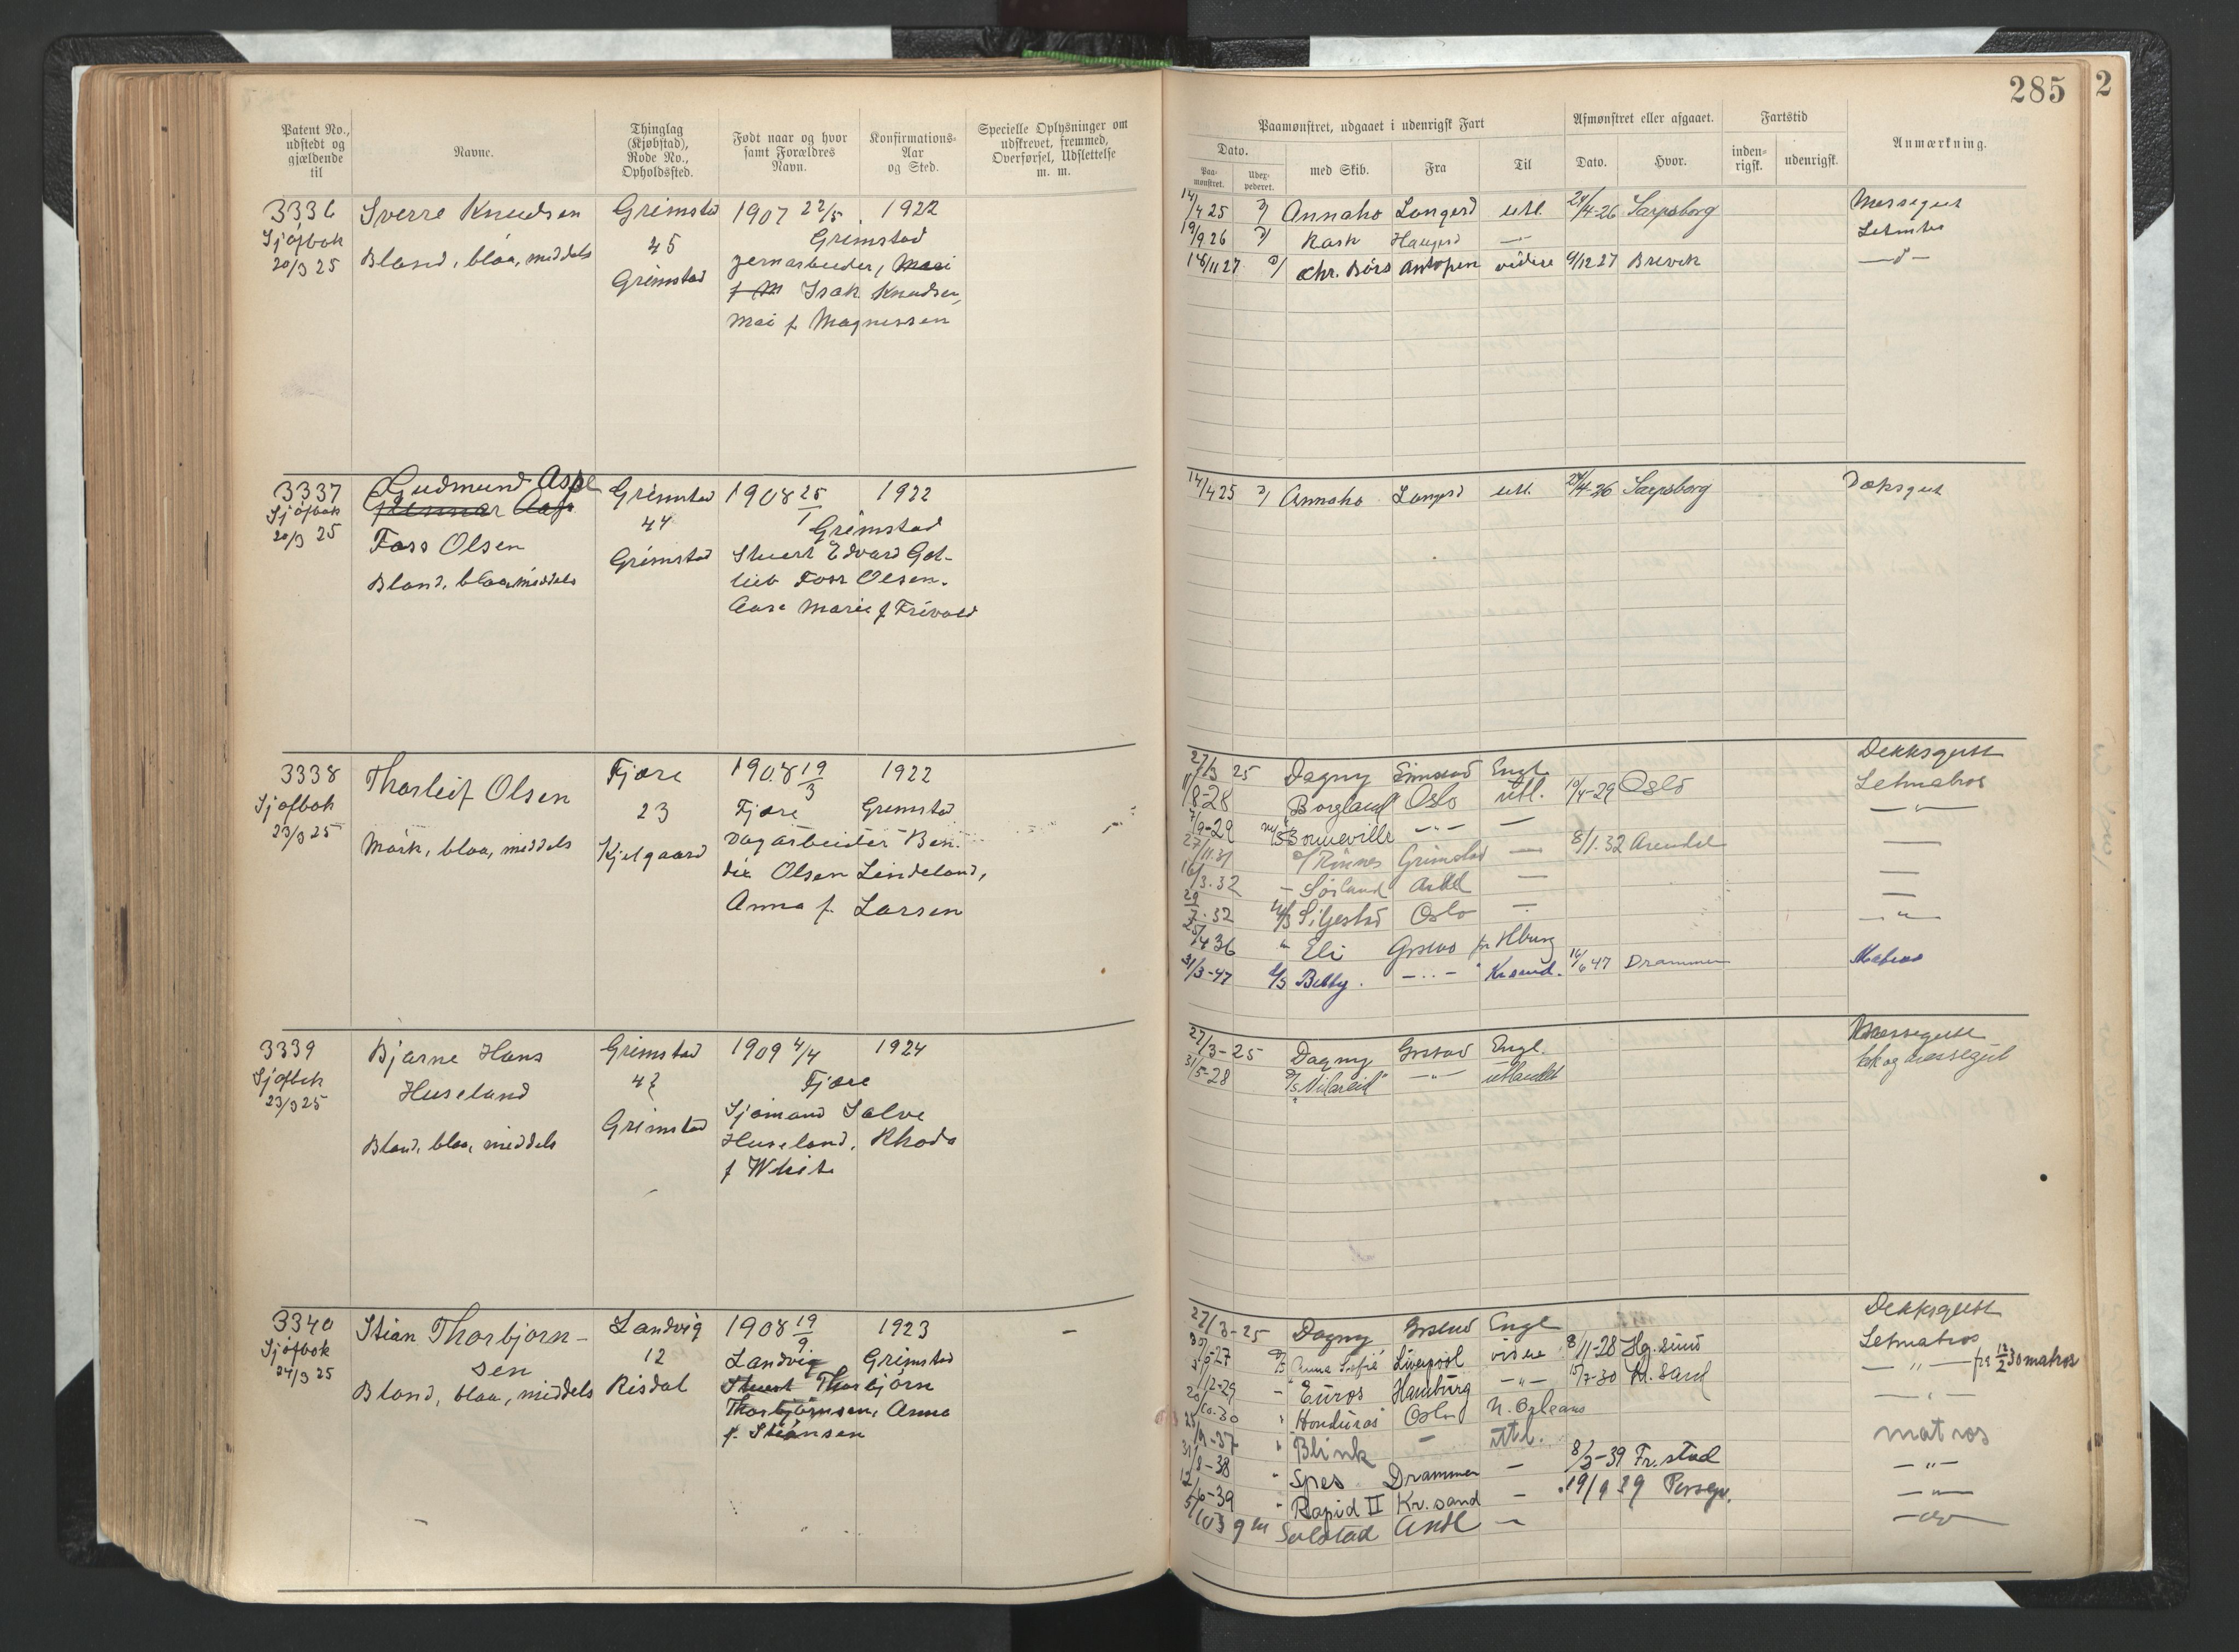 285
2
Patent No., udstedt og gjældende til
Navne.
Thinglag (Kjøbstad), Rode No., Opholdssted.
Født naar og hvor samt Forældres Navn.
Konfirmations-Aar og Sted.
Specielle Oplysninger om udskrevet, fremmed, Overførsel, Udslettelse m. m.
Paamønstret, udgaaet i udenrigsk Fart
Afmønstret eller afgaaet.
Fartstid
Anmærkning.
Dato.
Paamønstret.
Udexpederet.
med Skib.
Fra
Til
Dato.
Hvor.
indenrigsk.
udenrigsk.
3336 Sverre Knudsen Grimstad 1907 22/5 1922
Sjøfbok 45 Grimstad
20/3 25 Blond, blaa, middels Grimstad jernarbeider, Mari
f M Isak Knudsen,
Mai f Magnussen
14/4 25 Annaho Langesd utl. 24/4-26 Sarpsborg Messegut
19/9 26 Rask Haugesd — Letmtrs
14/11 27 Chr. Børs Antwpen videre 9/12 27 Brevik —"—
3337 Gudmund Aspe Grimstad 1908 25/1 1922
Sjøfbok Gunnar Aasp 44 Grimstad
20/3 25 Foss Olsen Grimstad Stuert Edvard Got-
Blond, blaa, middels lieb Foss Olsen.
Aase Marie f Frivold
14/4 25 Annaho Langesd utl. 24/4-26 Sarpsborg Dæksgut
3338 Thorleif Olsen Fjære 1908 19/3 1922
Sjøfbok 23 Fjære Grimstad
23/3 25 Mørk, blaa, middels Kjelgaard Dagarbeider Ben-
dix Olsen Lindeland,
Anna f. Larsen
27/3 25 Dagny Grimstad Engl. Dekksgutt
11/8-28 Borgland Oslo utl. 10/4-29 Oslo Letmatros
7/9-29 Bonneville —"— — —"—
27/11.31 Rinnes Grimstad — 8/1.32 Arendal —
16/3.32 — Sørland Ardl — —
29/7.32 M/S Siljestad Oslo — —"—
25/4 36 " Eli Grstad pr Hburg
31/3-47 Betty. —"— Krsund. 16/6 47 Drammen Matros
3339 Bjarne Hans Grimstad 1909 4/4 1924
Sjøfbok Huseland 47 Fjære
23/3 25 Grimstad Sjømand Salve
Blond, blaa, middels Huseland, Rhoda
f White
27/3-25 Dagny Grstad Engl. Messegutt
31/5-28 D/S "Vilareid" —"— utlandet kok og messegut
3340 Stian Thorbjørn- Landvig 1908 19/9 1923
Sjøfbok sen 12 Landvig Grimstad
24/3 25 Blond, blaa, middels Risdal Stuert Thorbjørn
Thorbjørnsen, Anna
f. Stiansen
27/3-25 Dagny Grstad Engl Dekksgutt
Anna Sofie Liverpool videre 8/11-28 Hg.sund Letmatros
/12-29 — Euros Hamburg —"— 15/7-30 Kr.sand —"— fra 12/2 30 matros
20/10.30 " Honduras Oslo N. Orleans —"—
25/9-37 " Blink — utl. matros
31/8-38 " Spes Drammen — 8/3-39 Fr.stad —"—
12/6-39 " Rapid II Kr.sand — 19/9 39 Porsgr. —"—
5/10 39 m Solstad Ardl —